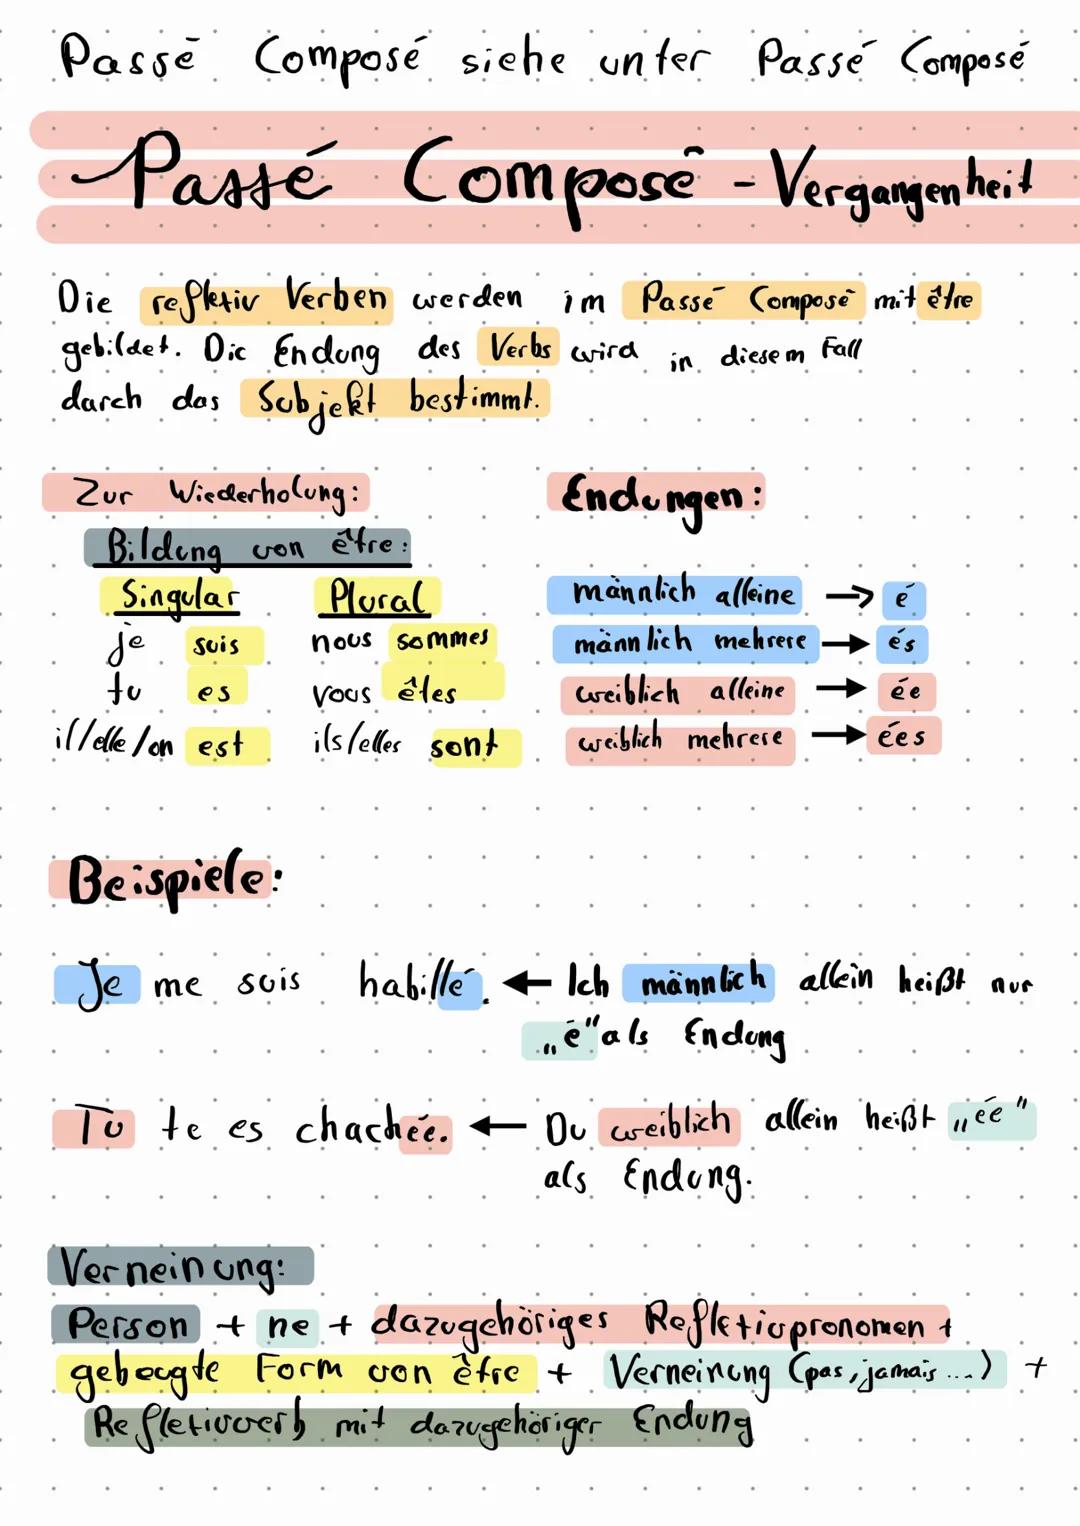 Passé Composé siehe unter Passé Composé
Passé Composé - Vergangenheit
Die reflexiv Verben werden im Passé Composé mit être
gebildet. Die Endung des Verbs wird in diesem Fall
durch das Subjekt bestimmt.
Zur Wiederholung:
Bildung von être:
Singular Plural
je suis nous sommes
tu es vous êtes
il/elle/on est ils/elles sont
Endungen:
männlich alleine → é
männlich mehrere → és
weiblich alleine → ée
weiblich mehrere → ées
Beispiele:
Je me suis habillé. ← Ich männlich allein heißt nur
„é" als Endung
Tu te es chachée. ← Du weiblich allein heißt „ée"
als Endung.
Verneinung:
Person + ne + dazugehöriges Reflexivpronomen +
gebeugte Form von être + Verneinung (pas, jamais ...) +
Reflexivverb mit dazugehöriger Endung